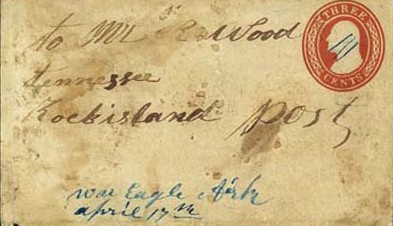 THREE
CENTS
to Mr Wood
tennessee
Rockisland Post
War Eagle Ark
april 17th